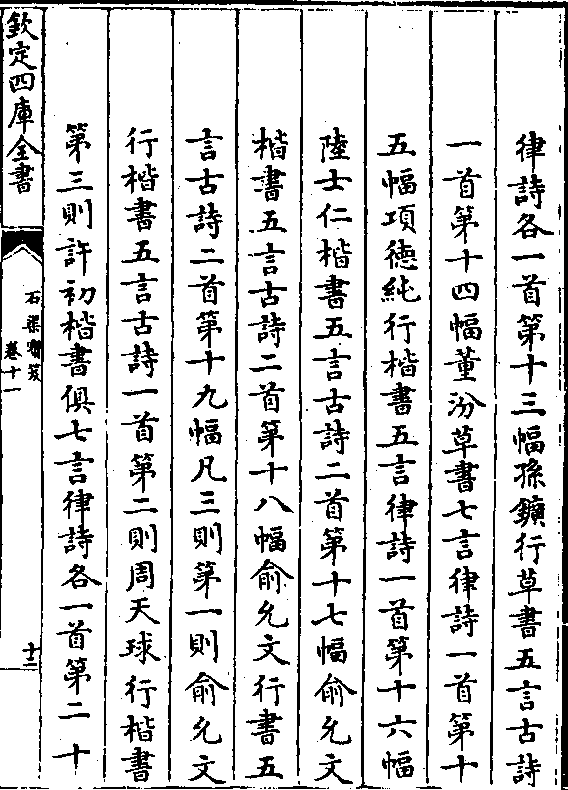 律詩各一首第十三幅孫鑛行草書五言古詩
一首第十四幅董汾草書七言律詩一首第十
五幅項徳純行楷書五言律詩一首第十六幅
陸士仁楷書五言古詩二首第十七幅俞允文
楷書五言古詩二首第十八幅俞允文行書五
言古詩二首第十九幅凡三則第一則俞允文
行楷書五言古詩一首第二則周天球行楷書
第三則許初楷書俱七言律詩各一首第二十
欽定四庫全書
石渠寳笈
卷十一
十二